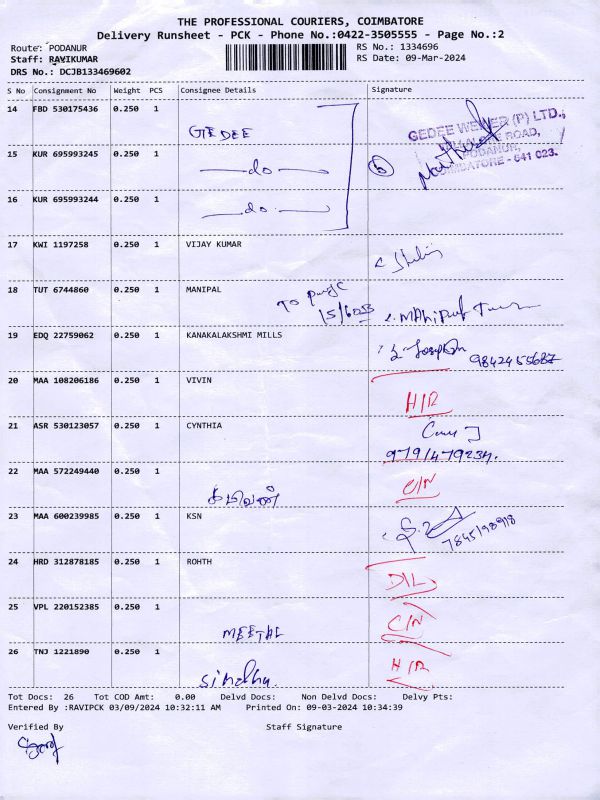 THE PROFESSIONAL COURIERS, COIMBATORE
Delivery Runsheet - PCK - Phone No.:0422-3505555 - Page No.:2
Route: PODANUR
RS No.: 1334696
Staff: RAVIKUMAR
RS Date: 09-Mar-2024
DRS No.: DCJB133469602
S No Consignment No Weight PCS Consignee Details Signature
14 FBD 530175436 0.250 1 GEDEE
GEDEE WEILER (P) LTD.,
ROAD,
PODANUR,
COIMBATORE - 641 023.
15 KUR 695993245 0.250 1 —do—
6
16 KUR 695993244 0.250 1 —do—
17 KWI 1197258 0.250 1 VIJAY KUMAR
18 TUT 6744860 0.250 1 MANIPAL
19 EDQ 22759062 0.250 1 KANAKALAKSHMI MILLS Joseph 9842455687
20 MAA 108206186 0.250 1 VIVIN H/R
21 ASR 530123057 0.250 1 CYNTHIA
22 MAA 572249440 0.250 1
23 MAA 600239985 0.250 1 KSN 7845198918
24 HRD 312878185 0.250 1 ROHTH D/L
25 VPL 220152385 0.250 1 MEETAL C/N
26 TNJ 1221890 0.250 1 Sindhu H/R
Tot Docs: 26 Tot COD Amt: 0.00 Delvd Docs: Non Delvd Docs: Delvy Pts:
Entered By :RAVIPCK 03/09/2024 10:32:11 AM Printed On: 09-03-2024 10:34:39
Verified By Staff Signature